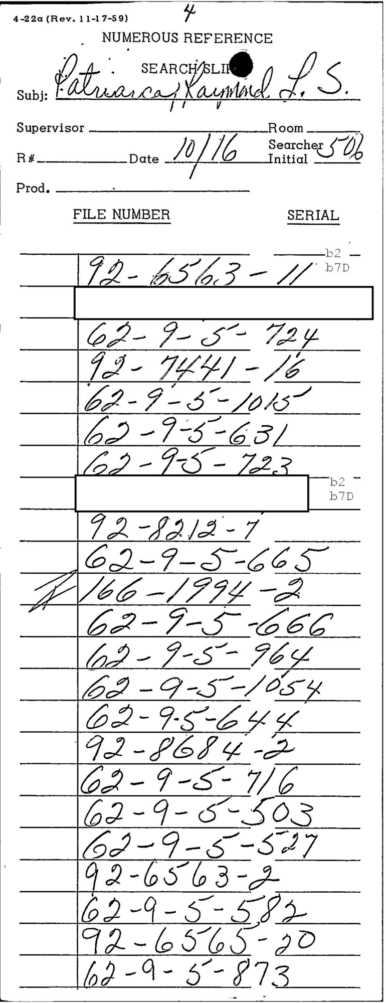 4-22a (Rev. 11-17-59)
4
NUMEROUS REFERENCE
SEARCH SLIP
Subj: Patriarca, Raymond L. S.
Supervisor Room
R# Date 10/16 Searcher Initial 506
Prod.
FILE NUMBER SERIAL
b2
92-6563-11 b7D
62-9-5-724
92-7441-16
62-9-5-1015
62-9-5-631
62-9-5-723
b2
b7D
92-8212-7
62-9-5-665
166-1994-2
62-9-5-666
62-9-5-964
62-9-5-1054
62-9-5-644
92-8684-2
62-9-5-716
62-9-5-503
62-9-5-527
92-6563-2
62-9-5-582
92-6565-20
62-9-5-873